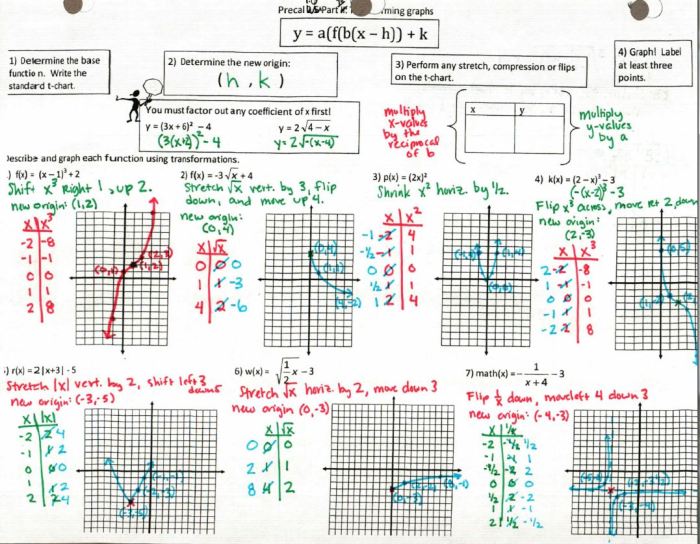 Precal
ming graphs
y = a(f(b(x − h)) + k
1) Determine the base
function. Write the
standard t-chart.
2) Determine the new origin:
(h, k)
3) Perform any stretch, compression or flips
on the t-chart.
4) Graph! Label
at least three
points.
You must factor out any coefficient of x first!
y = (3x + 6)² − 4
y = 2√4 − x
(3(x+2))² − 4
y = 2√-(x-4)
multiply
x-values
by the
reciprocal
of b
x y
multiply
y-values
by a
Describe and graph each function using transformations.
) f(x) = (x − 1)³ + 2
Shift x³ Right 1, up 2.
new origin: (1,2)
x x³
-2 -8
-1 -1
0 0
1 1
2 8
2) f(x) = -3√x + 4
Stretch √x vert. by 3, flip
down, and move up 4.
new origin:
(0,4)
x √x
0 0 0
1 1 -3
4 2 -6
(0,4)
(1,1)
(4,-2)
3) p(x) = (2x)²
Shrink x² horiz. by 1/2.
x x²
-1 -2 4
-1/2 -1 1
0 0 0
1/2 1 1
1 2 4
(0,0)
4) k(x) = (2 − x)³ − 3
(-(x-2))³ -3
Flip x³ across, move rt 2, down
new origin:
(2,-3)
x x³
2 -2 -8
1 -1 -1
0 0 0
-1 1 1
-2 2 8
) r(x) = 2|x+3| - 5
Stretch |x| vert. by 2, shift left 3
down 5
new origin: (-3,-5)
x |x|
-2 2 4
-1 1 2
0 0 0
1 1 2
2 2 4
(-3,-5)
6) w(x) = √1/2 x − 3
Stretch √x horiz. by 2, move down 3
new origin (0,-3)
x √x
0 0 0
2 1 1
8 4 2
(0,-3)
7) math(x) = − 1/x + 4 − 3
Flip 1/x down, move left 4 down 3
new origin: (-4,-3)
x 1/x
-2 -1/2 1/2
-1 -1 1
-1/2 -2 2
0 0 0
1/2 2 -2
1 1 -1
2 1/2 -1/2